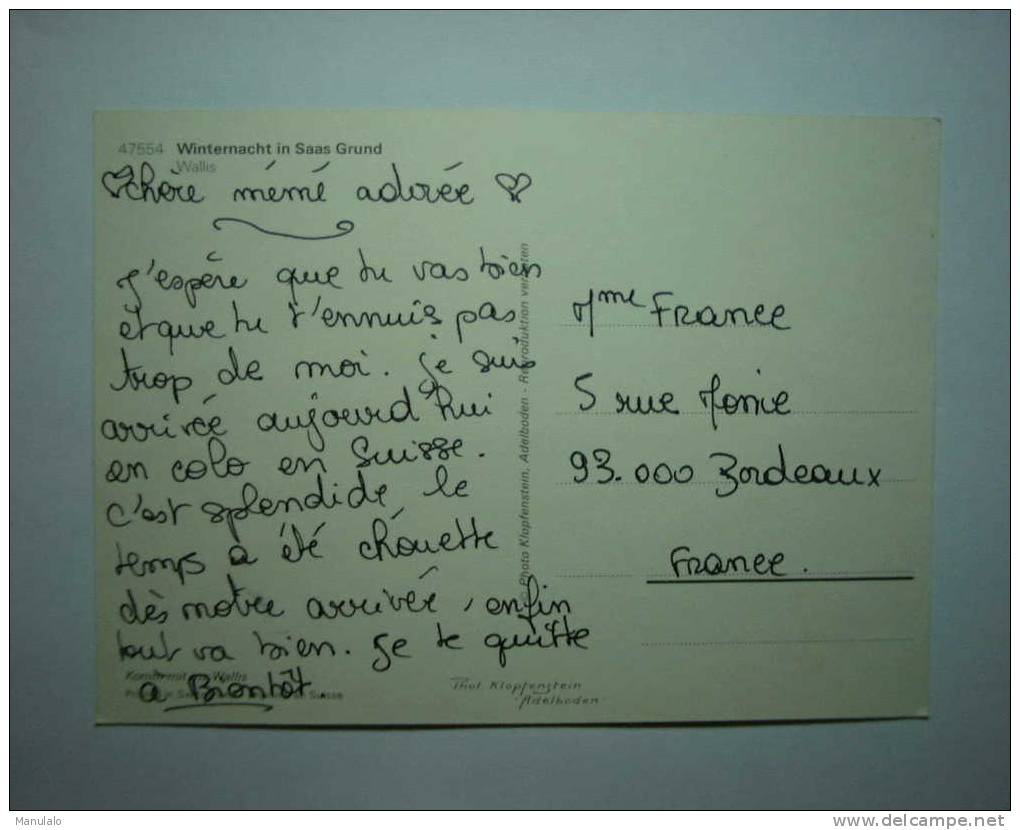 47554 Winternacht in Saas Grund
Wallis
chère mémé adorée
J'espère que tu vas bien
et que tu t'ennuis pas
trop de moi. Je suis
arrivée aujourd'hui
en colo en Suisse.
C'est splendide le
temps a été chouette
dès notre arrivée, enfin
tout va bien. Je te quitte
à Bientôt.
Photo Klopfenstein, Adelboden - Reproduktion verboten
Mme France
5 rue
93.000 Bordeaux
France.
Wallis
Suisse
Phot. Klopfenstein
Adelboden
Manulalo
delcampe.net